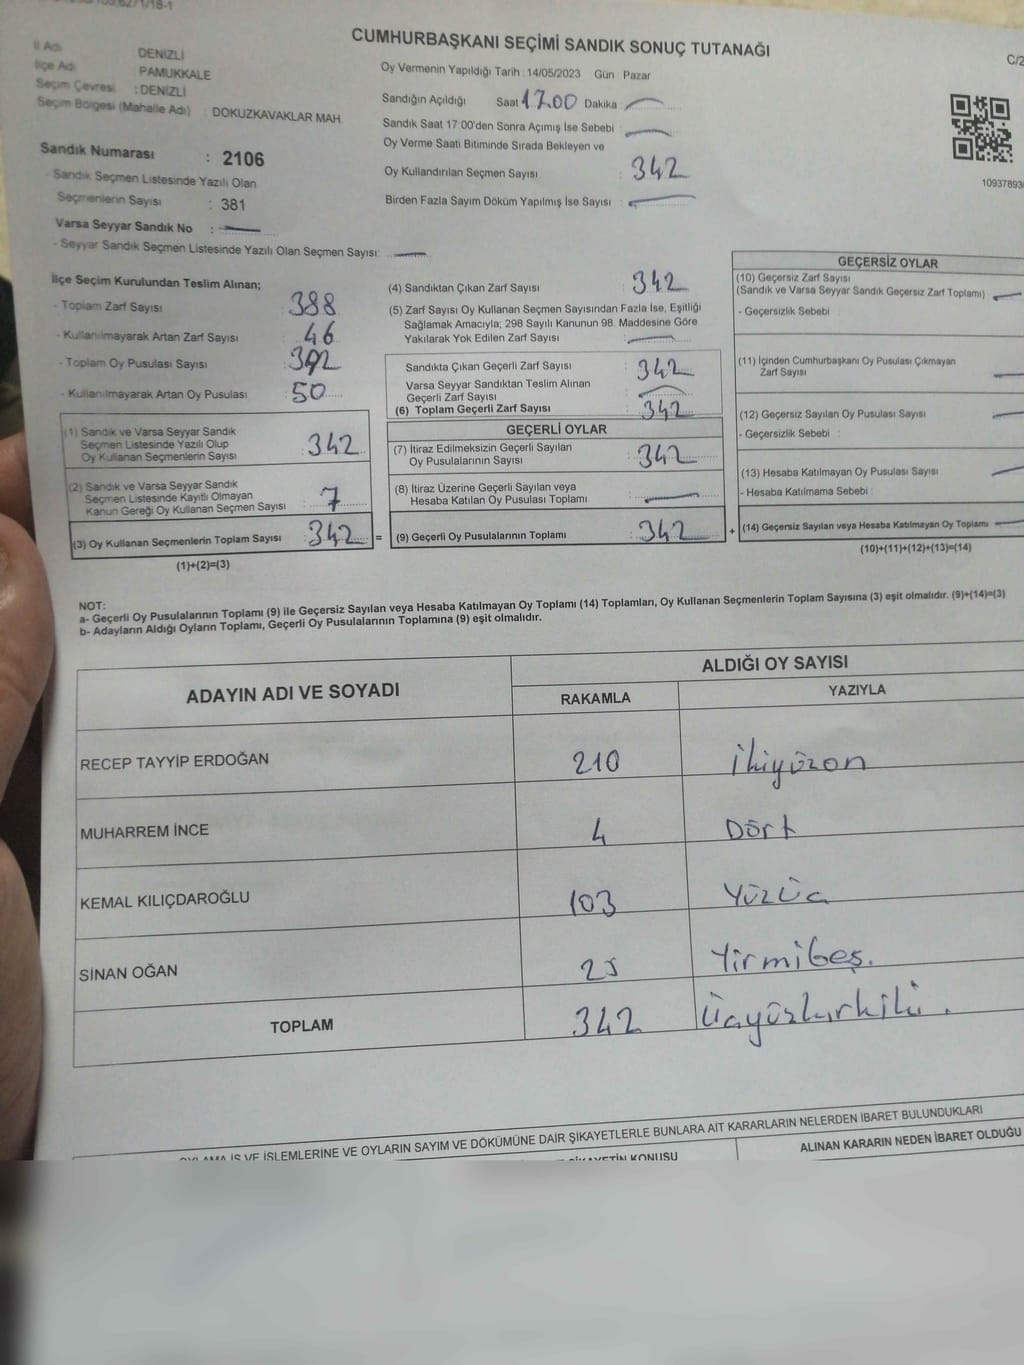 CUMHURBAŞKANI SEÇİMİ SANDIK SONUÇ TUTANAĞI
C/2
İl Adı DENİZLİ
İlçe Adı PAMUKKALE
Seçim Çevresi : DENİZLİ
Seçim Bölgesi (Mahalle Adı) : DOKUZKAVAKLAR MAH.
Sandık Numarası : 2106
- Sandık Seçmen Listesinde Yazılı Olan
Seçmenlerin Sayısı : 381
Varsa Seyyar Sandık No :
- Seyyar Sandık Seçmen Listesinde Yazılı Olan Seçmen Sayısı:
Oy Vermenin Yapıldığı Tarih : 14/05/2023 Gün : Pazar
Sandığın Açıldığı Saat 17.00 Dakika :
Sandık Saat 17:00'den Sonra Açımış İse Sebebi :
Oy Verme Saati Bitiminde Sırada Bekleyen ve
Oy Kullandırılan Seçmen Sayısı : 342
Birden Fazla Sayım Döküm Yapılmış İse Sayısı :
İlçe Seçim Kurulundan Teslim Alınan;
- Toplam Zarf Sayısı : 388
- Kullanılmayarak Artan Zarf Sayısı : 46
- Toplam Oy Pusulası Sayısı : 392
- Kullanılmayarak Artan Oy Pusulası : 50
(1) Sandık ve Varsa Seyyar Sandık
Seçmen Listesinde Yazılı Olup
Oy Kullanan Seçmenlerin Sayısı : 342
(2) Sandık ve Varsa Seyyar Sandık
Seçmen Listesinde Kayıtlı Olmayan
Kanun Gereği Oy Kullanan Seçmen Sayısı : 7
(3) Oy Kullanan Seçmenlerin Toplam Sayısı : 342 =
(1)+(2)=(3)
(4) Sandıktan Çıkan Zarf Sayısı : 342
(5) Zarf Sayısı Oy Kullanan Seçmen Sayısından Fazla İse, Eşitliği
Sağlamak Amacıyla; 298 Sayılı Kanunun 98. Maddesine Göre
Yakılarak Yok Edilen Zarf Sayısı :
Sandıkta Çıkan Geçerli Zarf Sayısı : 342
Varsa Seyyar Sandıktan Teslim Alınan
Geçerli Zarf Sayısı :
(6) Toplam Geçerli Zarf Sayısı : 342
GEÇERLİ OYLAR
(7) İtiraz Edilmeksizin Geçerli Sayılan
Oy Pusulalarının Sayısı : 342
(8) İtiraz Üzerine Geçerli Sayılan veya
Hesaba Katılan Oy Pusulası Toplamı :
(9) Geçerli Oy Pusulalarının Toplamı : 342 +
GEÇERSİZ OYLAR
(10) Geçersiz Zarf Sayısı
(Sandık ve Varsa Seyyar Sandık Geçersiz Zarf Toplamı)
- Geçersizlik Sebebi :
(11) İçinden Cumhurbaşkanı Oy Pusulası Çıkmayan
Zarf Sayısı
(12) Geçersiz Sayılan Oy Pusulası Sayısı
- Geçersizlik Sebebi :
(13) Hesaba Katılmayan Oy Pusulası Sayısı
- Hesaba Katılmama Sebebi :
(14) Geçersiz Sayılan veya Hesaba Katılmayan Oy Toplamı
(10)+(11)+(12)+(13)=(14)
NOT:
a- Geçerli Oy Pusulalarının Toplamı (9) ile Geçersiz Sayılan veya Hesaba Katılmayan Oy Toplamı (14) Toplamları, Oy Kullanan Seçmenlerin Toplam Sayısına (3) eşit olmalıdır. (9)+(14)=(3)
b- Adayların Aldığı Oyların Toplamı, Geçerli Oy Pusulalarının Toplamına (9) eşit olmalıdır.
ADAYIN ADI VE SOYADI ALDIĞI OY SAYISI
RAKAMLA YAZIYLA
RECEP TAYYİP ERDOĞAN 210 ikiyüzon
MUHARREM İNCE 4 Dört
KEMAL KILIÇDAROĞLU 103 Yüzüç
SİNAN OĞAN 25 Yirmibeş.
TOPLAM 342 Üçyüzkırkiki.
OYLAMA İŞ VE İŞLEMLERİNE VE OYLARIN SAYIM VE DÖKÜMÜNE DAİR ŞİKAYETLERLE BUNLARA AİT KARARLARIN NELERDEN İBARET BULUNDUKLARI
ŞİKAYETİN KONUSU ALINAN KARARIN NEDEN İBARET OLDUĞU